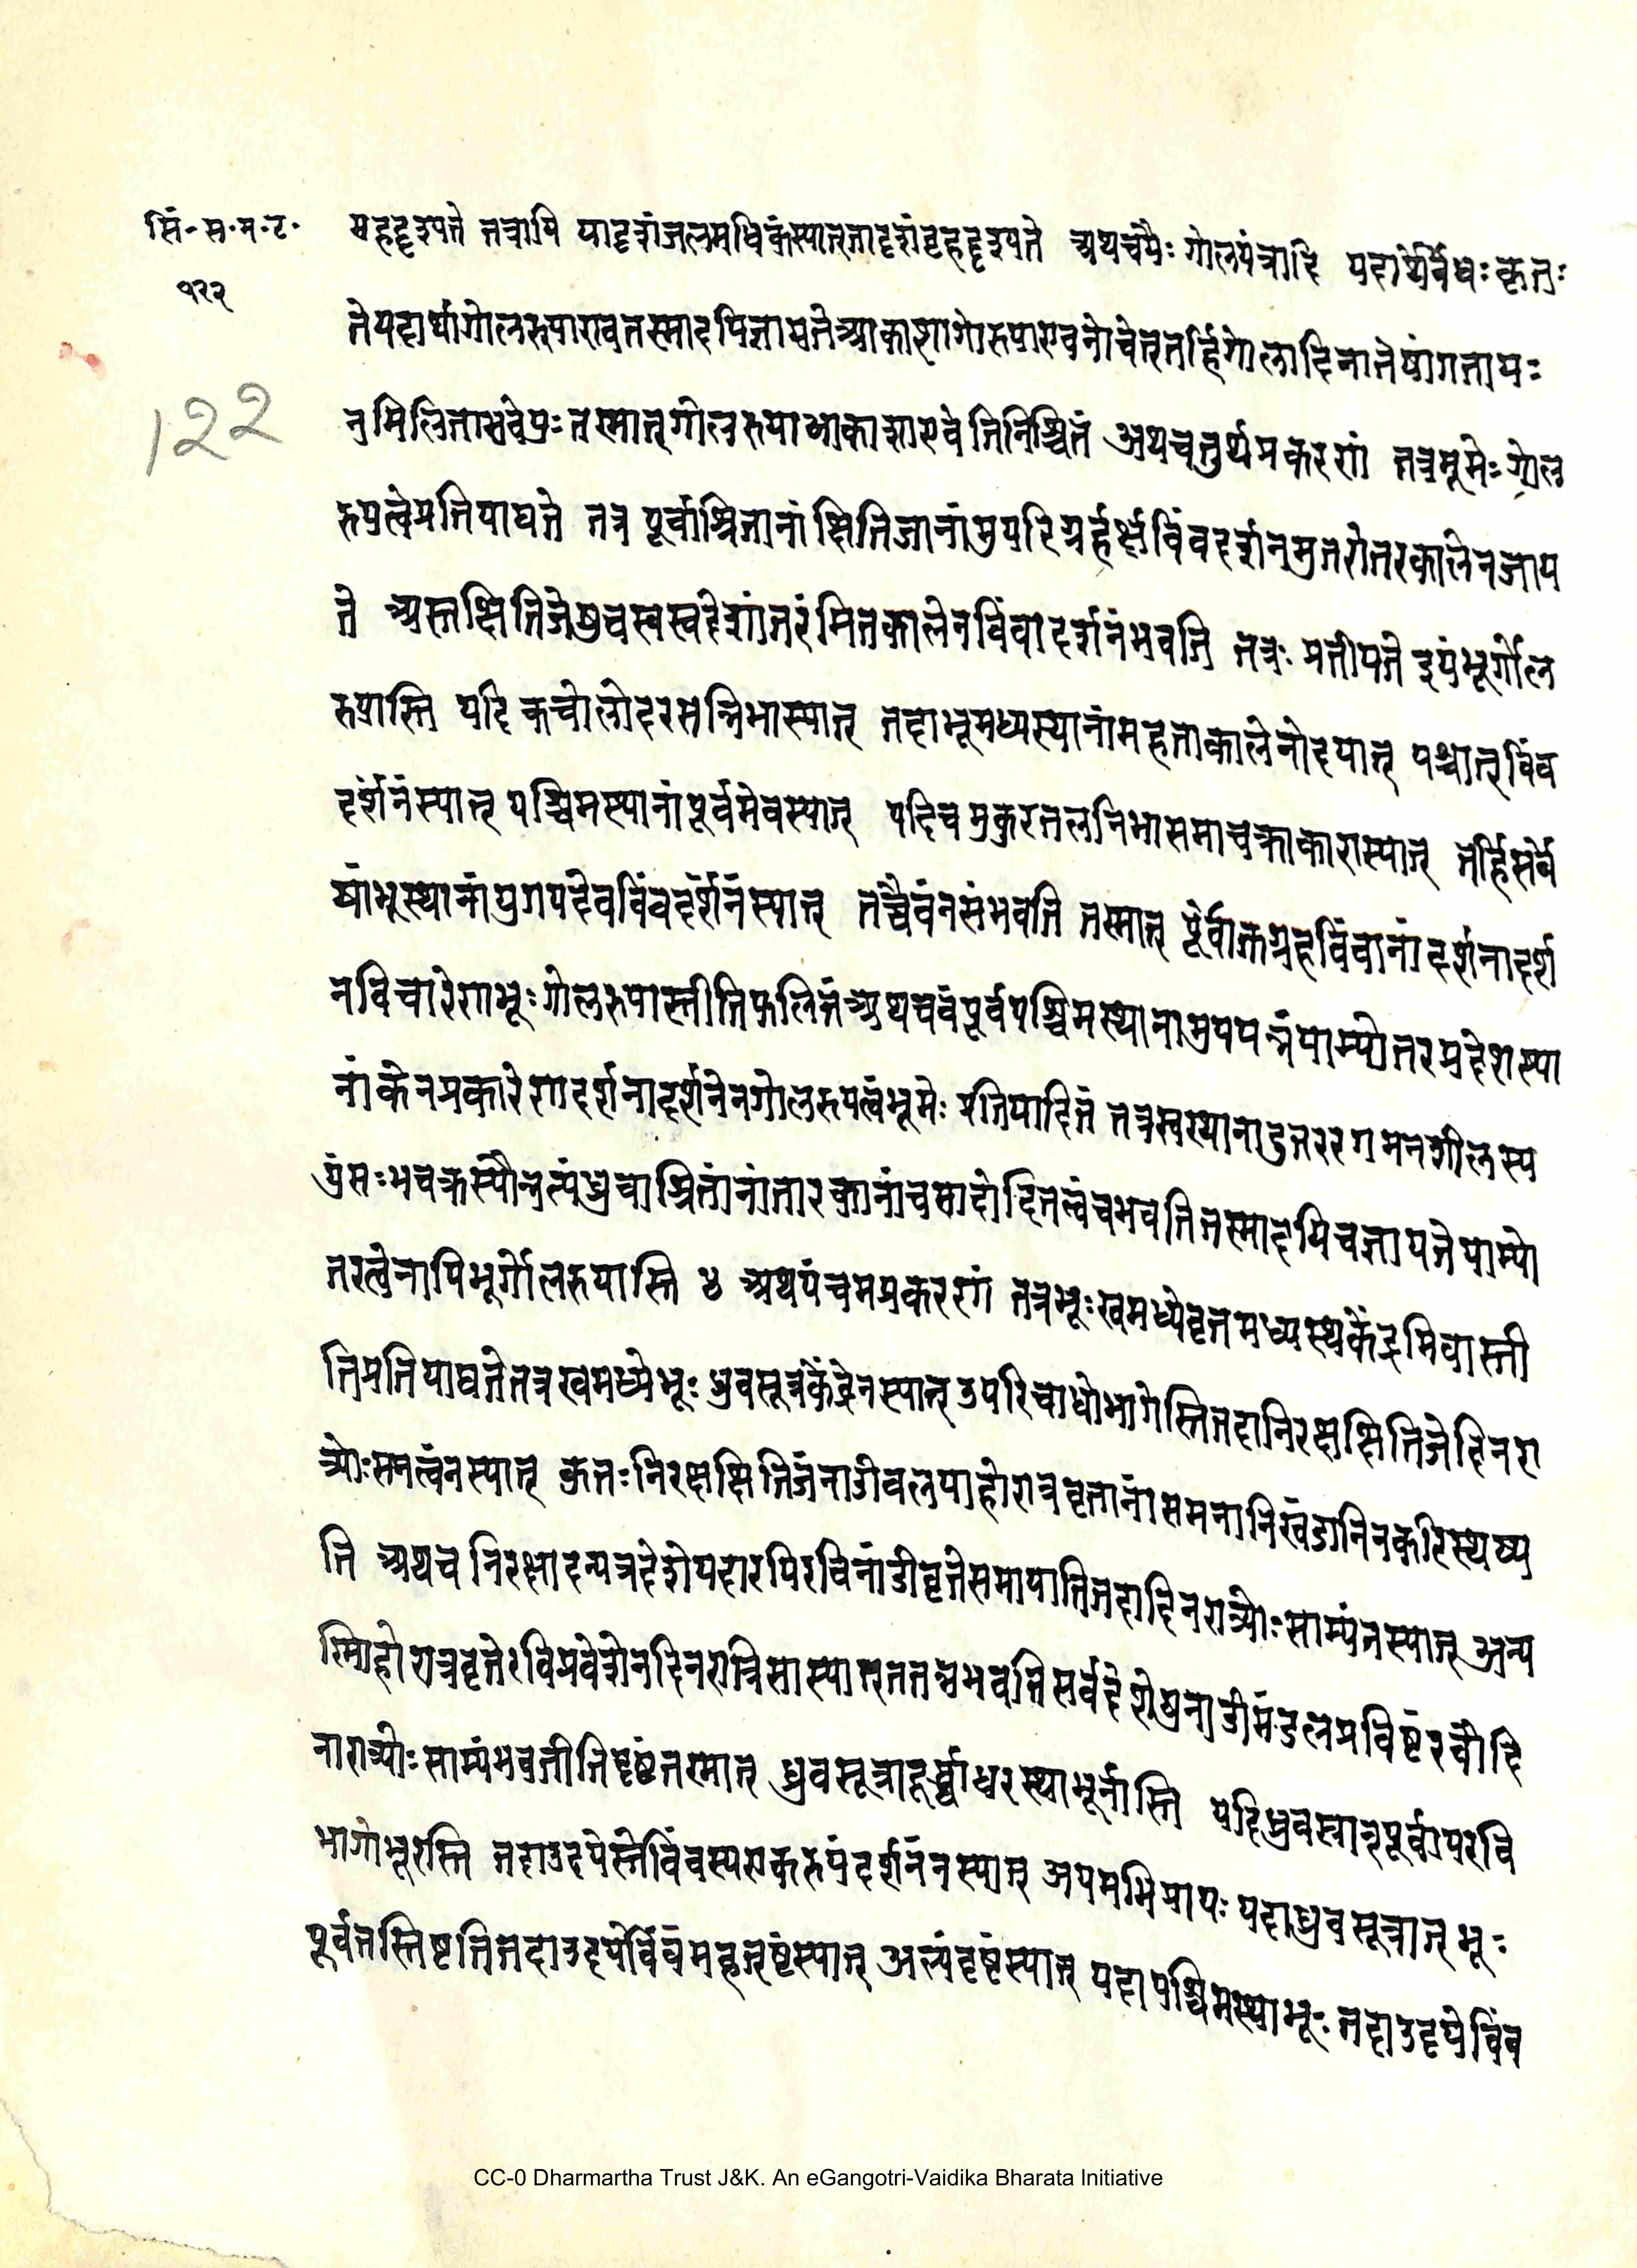 सिं॰ स॰ म॰ ट॰
१२२
122
बृहद्दृश्यते तत्रापि यादृशंजलमधिकंस्यात्तादृशंबृहद्दृश्यते अथचयैः गोलयंत्रादि पदार्थर्वेधः कृतः
तेपदार्थागोलरूपाएवतस्मादपिज्ञायतेआकाशागोलरूपाएवनोचेत्तर्हिगोलादिनातेषांगतायः
नमिलिताभवेयुः तस्मात् गोलरूपाआकाशाएवेतिनिश्चितं अथचतुर्थप्रकरणं तत्रभूमेः गोल
रूपत्वंप्रतिपाद्यते तत्र पूर्वाश्रितानां क्षितिजानामुपरिग्रहर्क्षबिंबदर्शनमुत्तरोत्तरकालेनजाय
ते अस्तक्षितिजेषुचस्वस्वदेशांतरंमितकालेनबिंबादर्शनंभवति तत्रः प्रतीयते इयंभूर्गोल
रूपास्ति यदि कचोलोदरसन्निभास्यात् तदाभूमध्यस्थानांमहताकालेनोदयात् पश्चात् बिंब
दर्शनंस्यात् पश्चिमस्थानांपूर्वमेवस्यात् यदिचमुकुरतलनिभासमाचक्राकारास्यात् तर्हिसर्वे
षांभूस्थानांयुगपदेवबिंबदर्शनंस्यात् तच्चैवंनसंभवति तस्मात् पूर्वोक्तग्रहबिंबानां दर्शनादर्श
नविचारेणभूः गोलरूपास्तीतिफलितंअथचवंपूर्वपश्चिमस्थानामुपपन्नंयाम्योत्तरप्रदेशस्था
नांकेनप्रकारेणदर्शनादर्शनेनगोलरूपत्वंभूमेः प्रतिपादितं तत्रस्वस्थानादुत्तररगमनशीलस्य
पुंसः भचक्रस्यौन्नत्यंध्रुवाश्रितांनांतारकानांचसादोदितत्वंचभवतितस्मादपिचज्ञायतेयाम्यो
त्तरत्वेनापिभूर्गोलरूपास्ति ४ अथपंचमप्रकररणं तत्रभूः खमध्येवृत्तमध्यस्थकेंद्रमिवास्ती
तिप्रतिपाद्यतेतत्रखमध्येभूः ध्रुवसूत्रकेंद्रेनस्यात् उपरिचाधोभागेस्तितदानिरक्षक्षितिजेदिनरा
त्र्योः समत्वंनस्यात् कुतः निरक्षक्षितिजंनाडीवलयाहोरात्रवृत्तानांसमनानिखंडानिनकरिस्यष्य
ति अथच निरक्षादन्यत्रदेशेयदारपिरविनाडीवृत्तेसमायातितदादिनरात्र्योः साम्यंनस्यात् अन्य
स्मिहोरात्रवृत्तेरविप्रवेशेनदिनरात्रिसास्यात्ततन्नभवतिसर्वदेशेषुनाडीमंडलप्रविष्टेरवौदि
नारात्र्योः साम्यंभवतीतिदृष्टंतस्मात् ध्रुवसूत्रादूर्ध्वाधरस्थाभूर्नास्ति यदिध्रुवस्त्रात्पूर्वापरवि
भागोभूरस्ति तदाउदयेस्तेबिंबस्यएकरूपंदर्शनंनस्यात् अयमभिप्रायः यदाध्रुवसूत्रात् भूः
पूर्वतस्तिष्टतितदाउदयेबिंबंमहत्दृष्टंस्यात् अल्पंदृष्टंस्यात् यदापश्चिमस्थाभूः तदाउदयेबिंब
CC-0 Dharmartha Trust J&K. An eGangotri-Vaidika Bharata Initiative